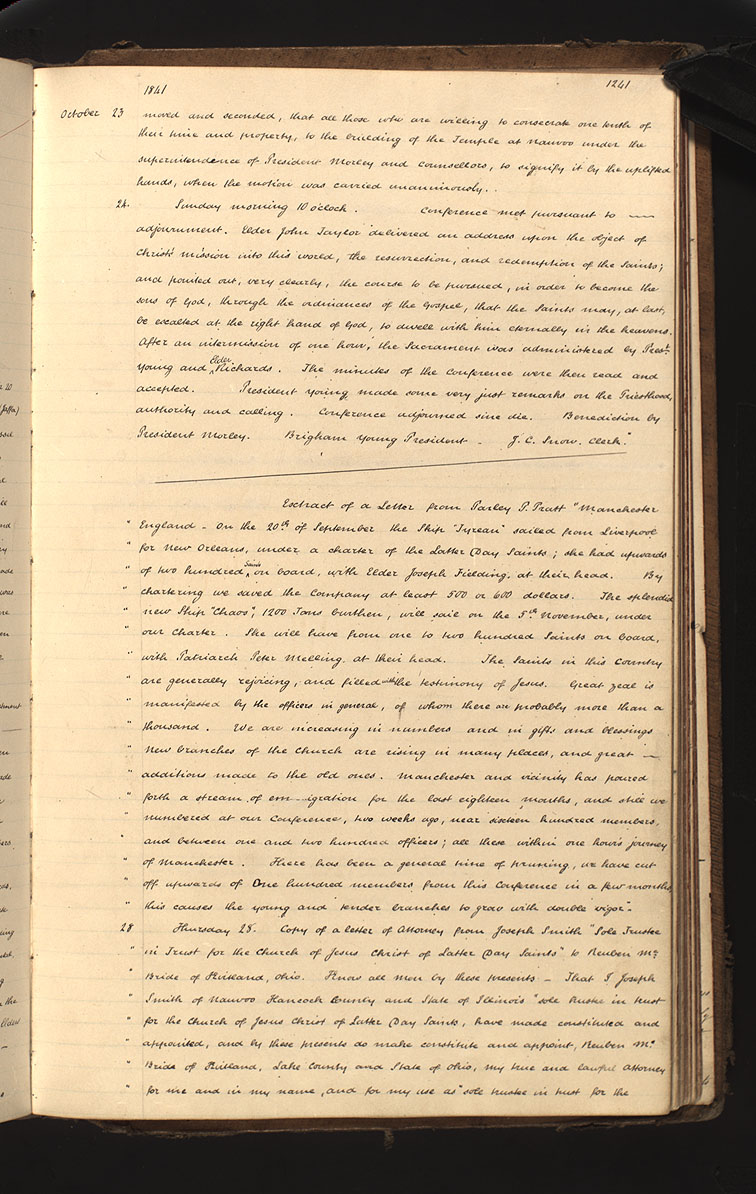 1841 1241
October 23 moved and seconded, that all those who are willing to consecrate one tenth of
their time and property, to the building of the Temple at Nauvoo under the
superintendence of President Morley and Counsellors, to signify it by the uplifted
hands, when the motion was carried unanimously.
24. Sunday morning 10 o'clock. Conference met pursuant to —
adjournment. Elder John Taylor delivered an address upon the object of
Christ's mission into this world, the resurrection, and redemption of the Saints;
and pointed out, very clearly, the course to be pursued, in order to become the
sons of God, through the ordinances of the Gospel, that the Saints may, at last,
be escalted at the right hand of God, to dwell with him eternally in the heavens.
After an intermission of one hour, the Sacrament was administered by Prest.
Young and Elder Richards. The minutes of the Conference were then read and
accepted. President Young made some very just remarks on the Priesthood,
authority and calling. Conference adjourned sine die. Benediction by
President Morley. Brigham Young President - J. C. Snow. Clerk."
Extract of a Letter from Parley P. Pratt "Manchester
" England - On the 20th of September the Ship "Tyrean" sailed from Liverpool
" for New Orleans, under a charter of the Latter Day Saints; she had upwards
" of two hundred Saints on board, with Elder Joseph Fielding, at their head. By
" chartering we saved the Company at least 500 or 600 dollars. The splendid
" new Ship "Chaos", 1200 Tons burthen, will sail on the 5th November, under
" our Charter. She will have from one to two hundred Saints on board,
" with Patriarch Peter Melling, at their head. The Saints in this Country
" are generally rejoicing, and filled with the testimony of Jesus. Great zeal is
" manifested by the officers in general, of whom there are probably more than a
" thousand. We are increasing in numbers and in gifts and blessings
" New branches of the Church are rising in many places, and great —
" additions made to the old ones. Manchester and vicinity has poured
" forth a stream of em-igration for the last eighteen months, and still we
" numbered at our Conference, two weeks ago, near sixteen hundred members,
" and between one and two hundred officers; all these within one hour's journey
" of Manchester. There has been a general time of pruning, we have cut
" off upwards of One hundred members from this Conference in a few months,
" this causes the young and tender branches to grow with double vigor".
28 Thursday 28. Copy of a letter of Attorney from Joseph Smith "Sole Trustee
" in Trust for the Church of Jesus Christ of Latter Day Saints" to Reuben Mc
" Bride of Kirtland, Ohio. Know all men by these presents - That I Joseph
" Smith of Nauvoo Hancock County and State of Illinois "sole trustee in trust
" for the Church of Jesus Christ of Latter Day Saints, have made constituted and
" appointed, and by these presents do make constitute and appoint, Reuben Mc
" Bride of Kirtland, Lake County and State of Ohio, my true and lawful Attorney
" for me and in my name, and for my use as "sole trustee in trust for the